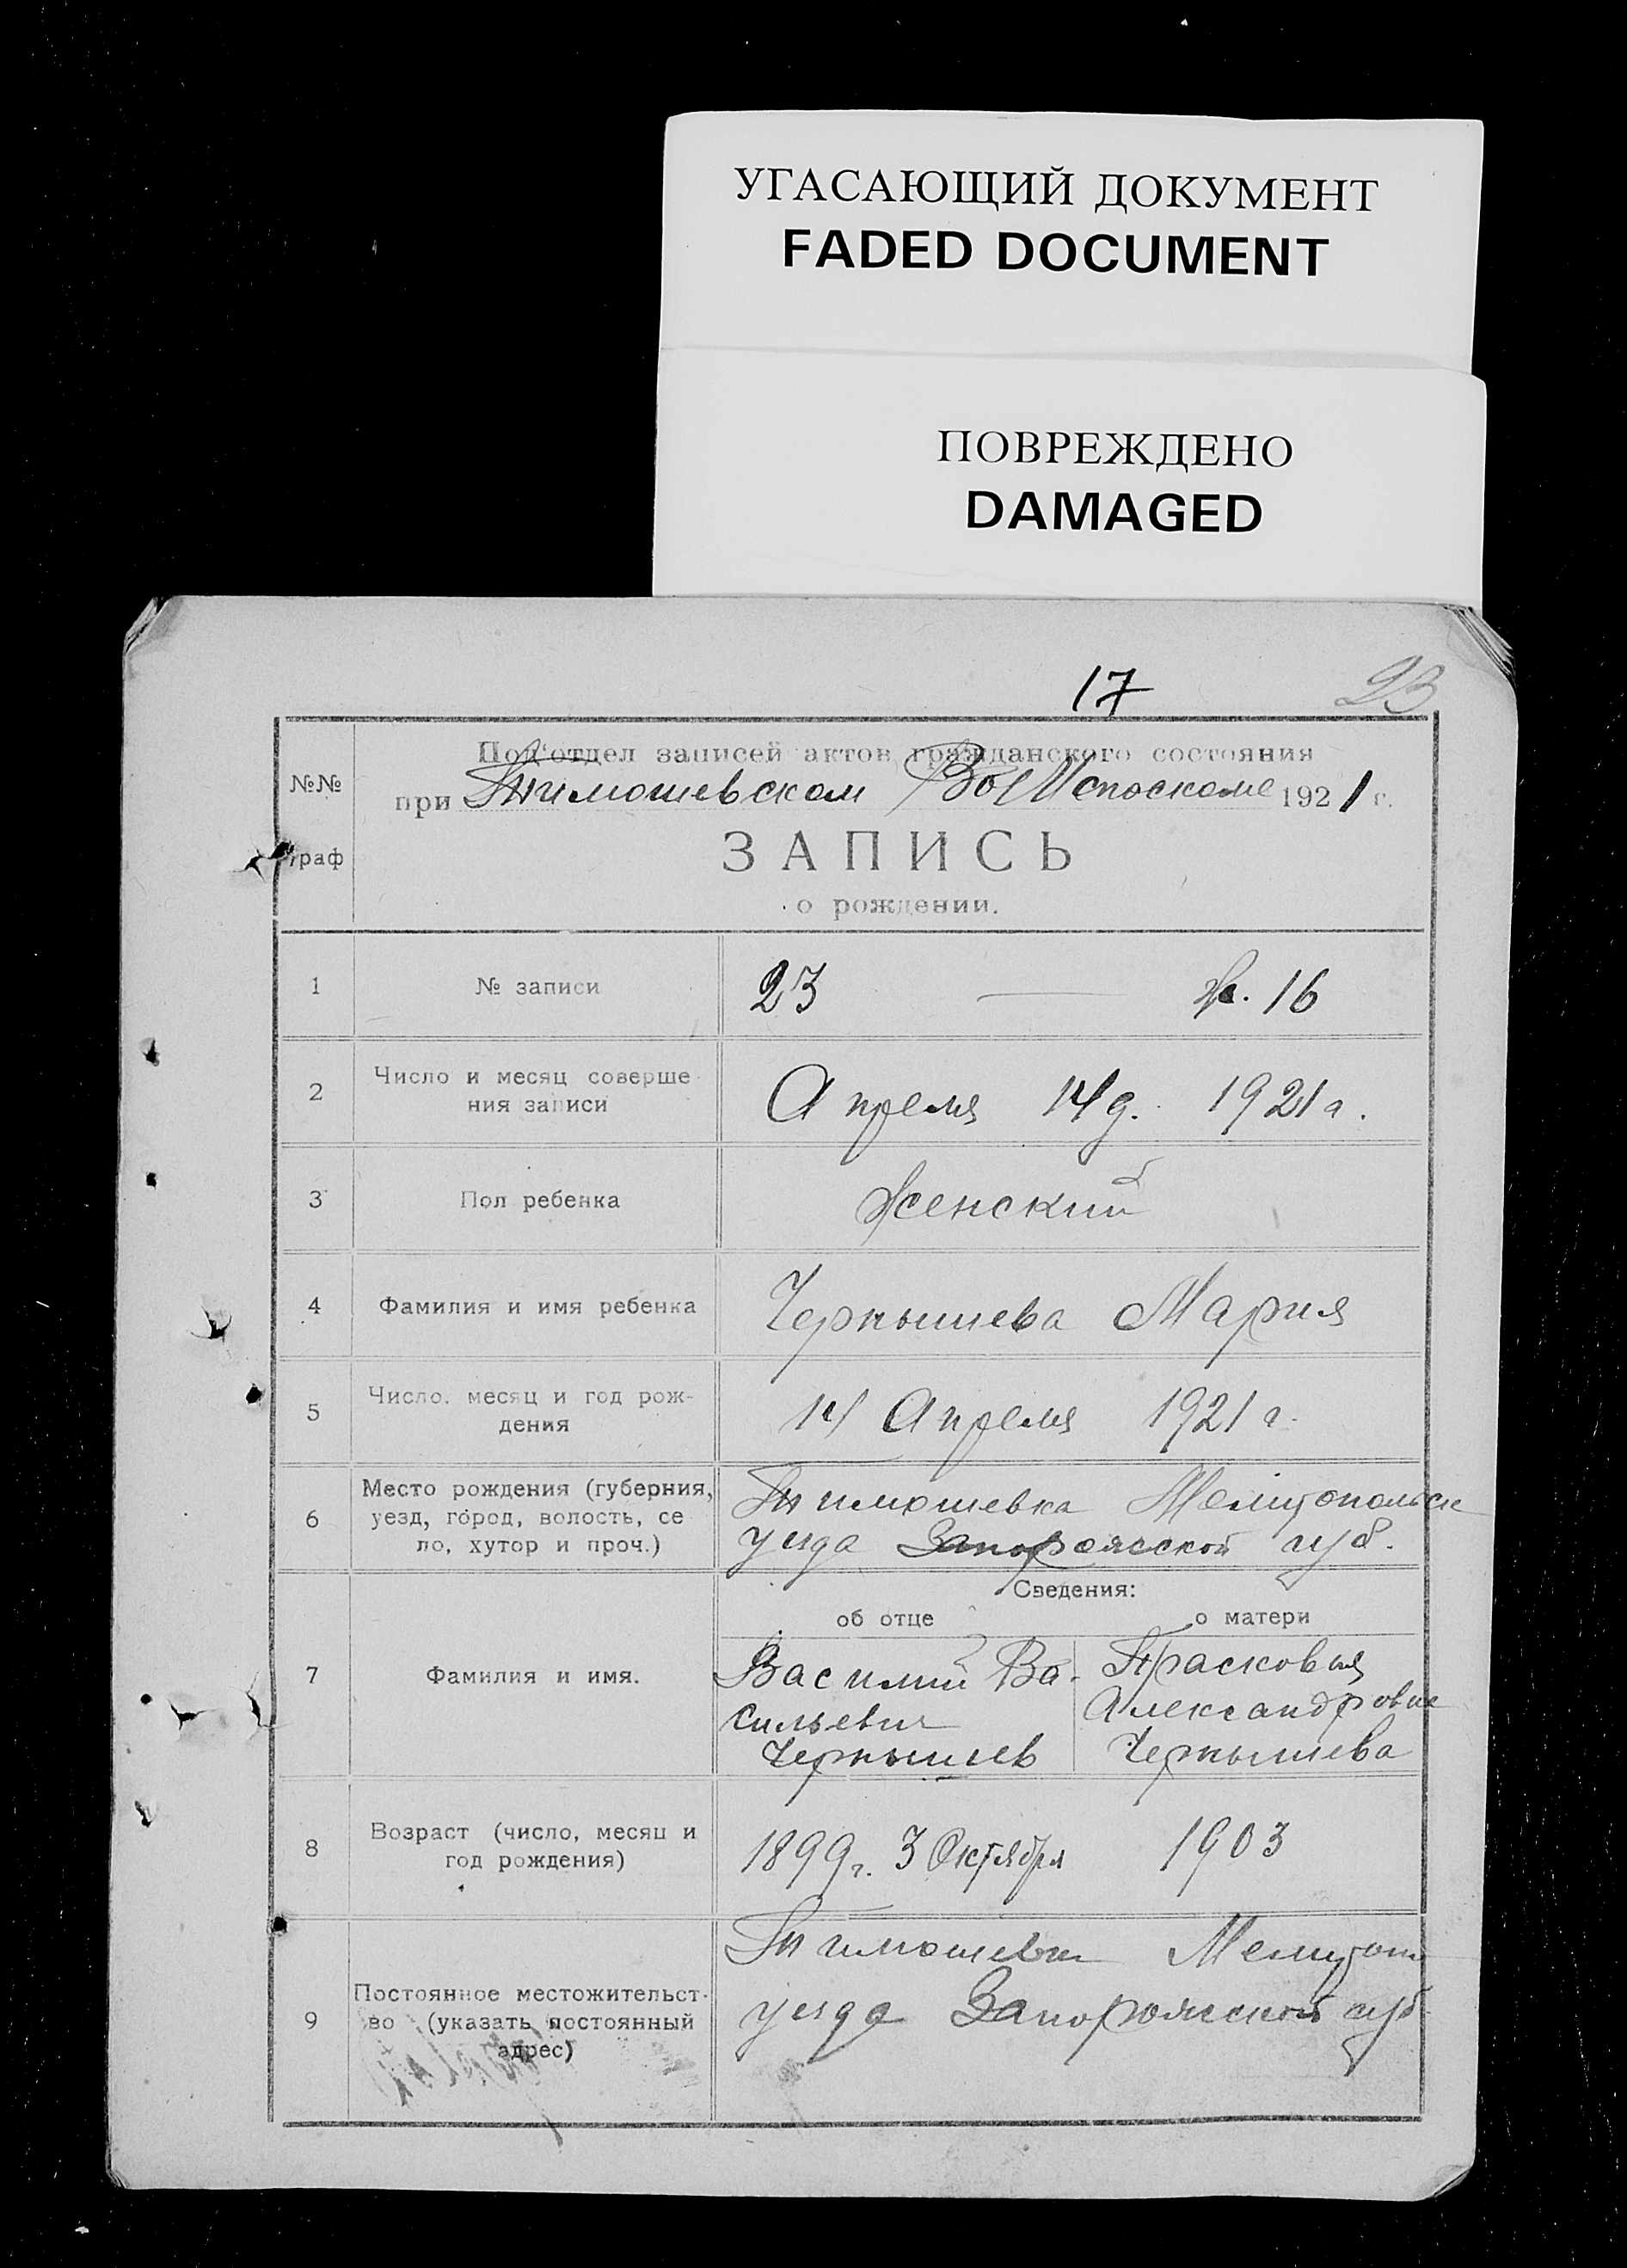 УГАСАЮЩИЙ ДОКУМЕНТ
FADED DOCUMENT
ПОВРЕЖДЕНО
DAMAGED
17
23
№№
граф
Под'отдел записей актов гражданского состояния
при Тимошевском ВолИсполкоме 1921 г.
ЗАПИСЬ
о рождении.
1
№ записи
23 — Ж. 16
2
Число и месяц соверше
ния записи
Апреля 14 д. 1921 г.
3
Пол ребенка
Женский
4
Фамилия и имя ребенка
Чернышева Мария
5
Число, месяц и год рож-
дения
14 Апреля 1921 г.
6
Место рождения (губерния,
уезд, город, волость, се
ло, хутор и проч.)
Тимошевка Мелитопольск
уезда Запорожской губ.
Сведения:
об отце
о матери
7
Фамилия и имя.
Василий Ва-
сильевич
Чернышев
Прасковья
Александровна
Чернышева
8
Возраст (число, месяц и
год рождения)
1899 г. 3 Октября
1903
9
Постоянное местожительст-
во (указать постоянный
адрес)
Тимошевка Мелитоп
уезда Запорожской губ